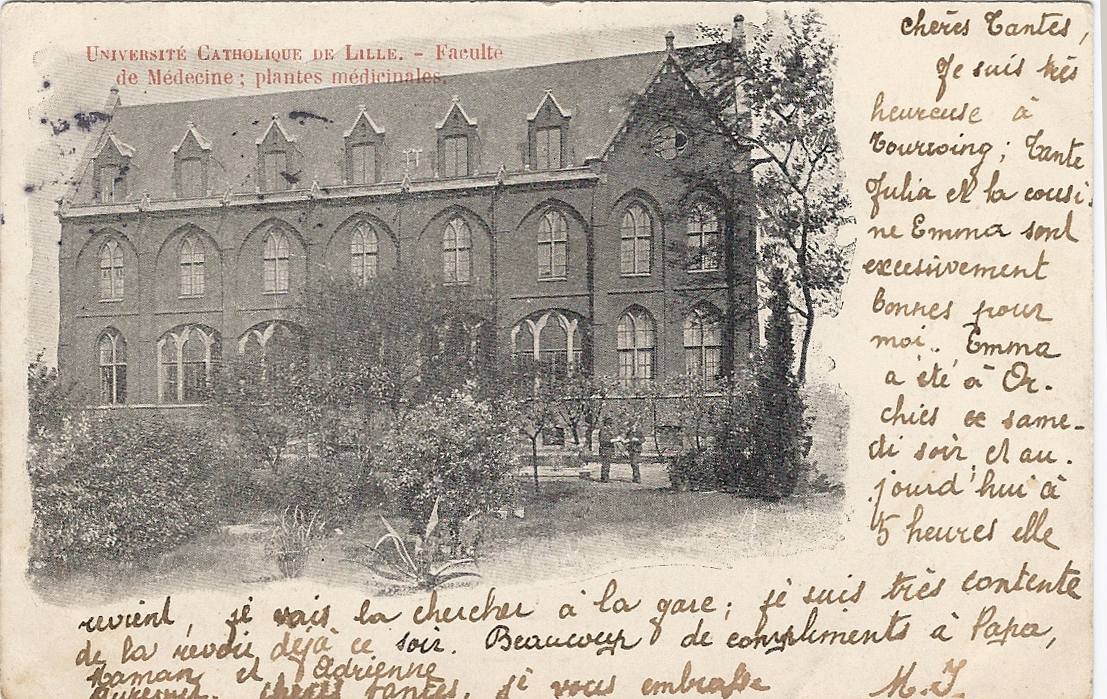 UNIVERSITÉ CATHOLIQUE DE LILLE. - Faculté
de Médecine ; plantes médicinales.
chères Tantes,
Je suis très
heureuse à
Tourcoing ; Tante
Julia et la cousi-
ne Emma sont
excessivement
bonnes pour
moi. Emma
a été à Or-
chies ce same-
di soir, et au-
jourd'hui à
5 heures elle
revient, je vais la chercher à la gare ; je suis très contente
de la revoir déjà ce soir. Beaucoup de compliments à Papa,
Maman et Adrienne
chères tantes, je vous embrasse M. J